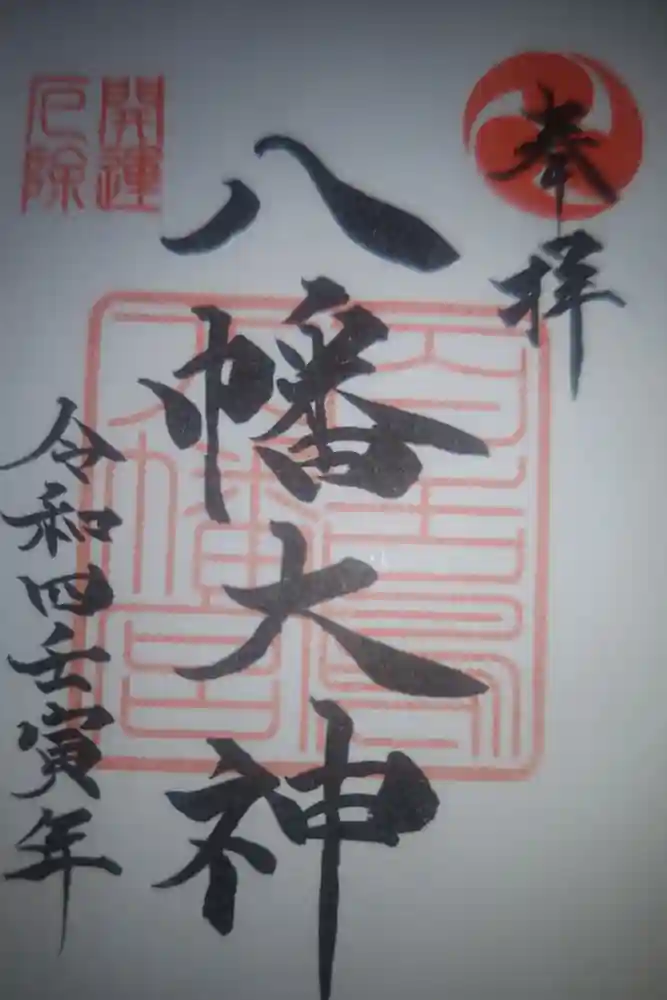 奉拝
八幡大神
令和四壬寅年
開運
厄除